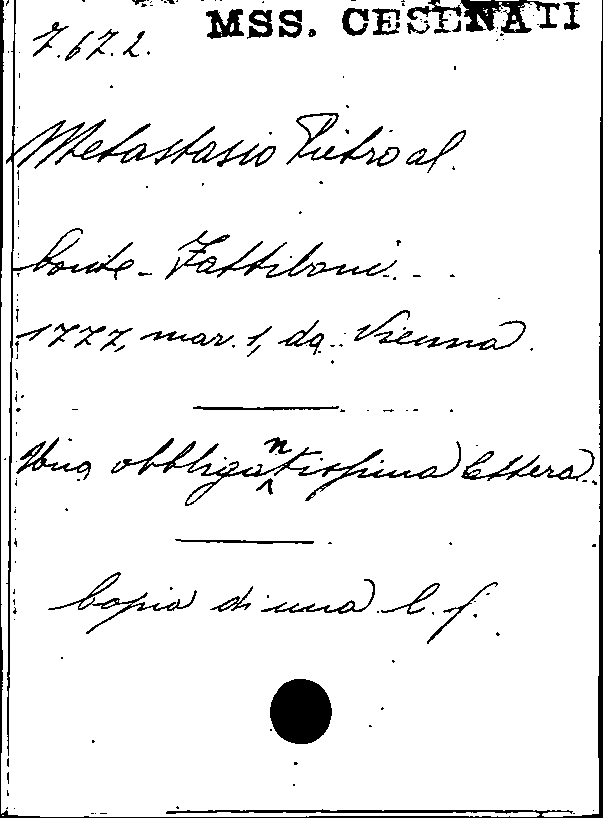 MSS. CESENATI
7.67.2.
Metastasio Pietro al
Conte Fattiboni
1777, mar. 1, da Vienna
Una obbligantissima lettera
Copia di una l. f.